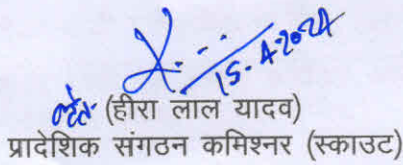 15-4-2024
(हीरा लाल यादव)
प्रादेशिक संगठन कमिश्नर (स्काउट)